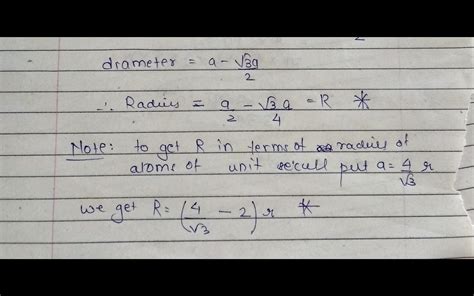 diameter = a - √3a/2
∴ Radius = a/2 - √3 a/4 = R *
Note: to get R in terms of radius of
atoms of unit cell put a = 4/√3 r
we get R = (4/√3 - 2) r *